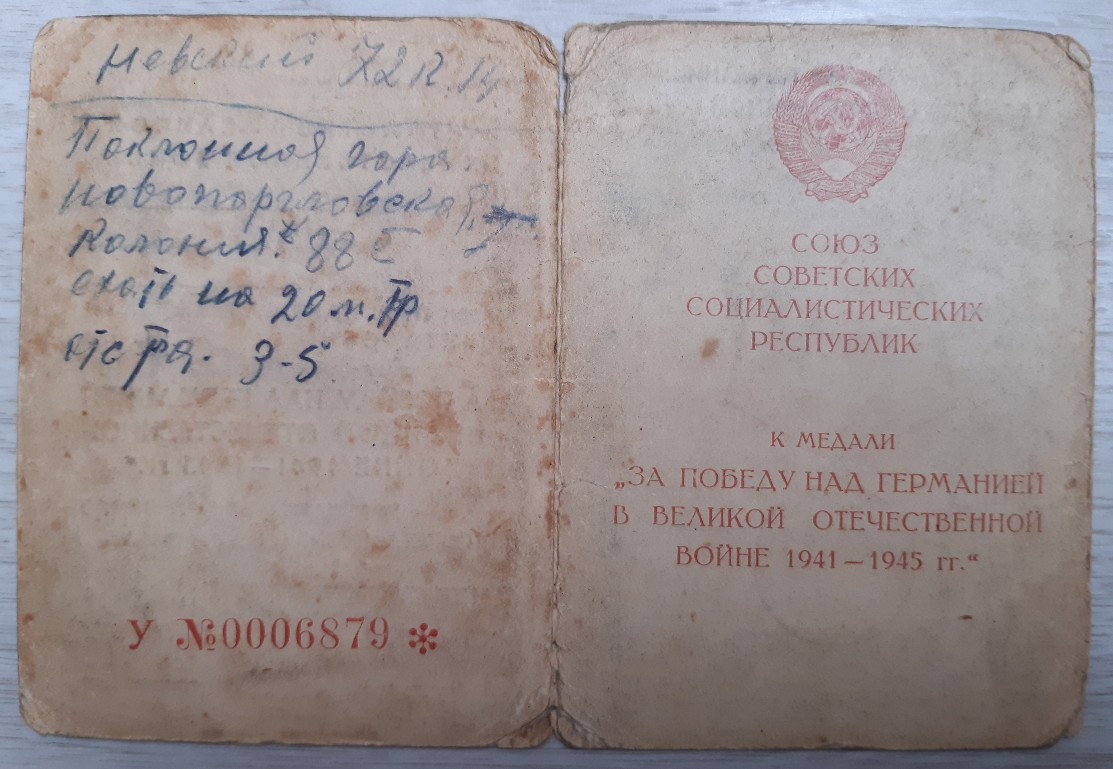 Невский 72 к.
Поклонная гора.
Новопарголовская
Колония. 88
ехать на 20 м. Тр
3-5
У №0006879 *
СОЮЗ
СОВЕТСКИХ
СОЦИАЛИСТИЧЕСКИХ
РЕСПУБЛИК
К МЕДАЛИ
„ЗА ПОБЕДУ НАД ГЕРМАНИЕЙ
В ВЕЛИКОЙ ОТЕЧЕСТВЕННОЙ
ВОЙНЕ 1941—1945 гг.“